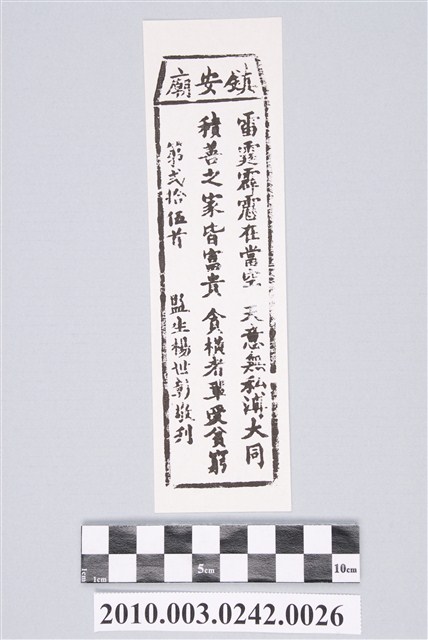 鎮安廟
雷霆霹靂在當空 天意無私溥大同
積善之家皆富貴 貪橫者輩受貧窮
第弍拾伍首 監生楊世彰敬刊
1cm
1cm
5cm
10cm
2010.003.0242.0026